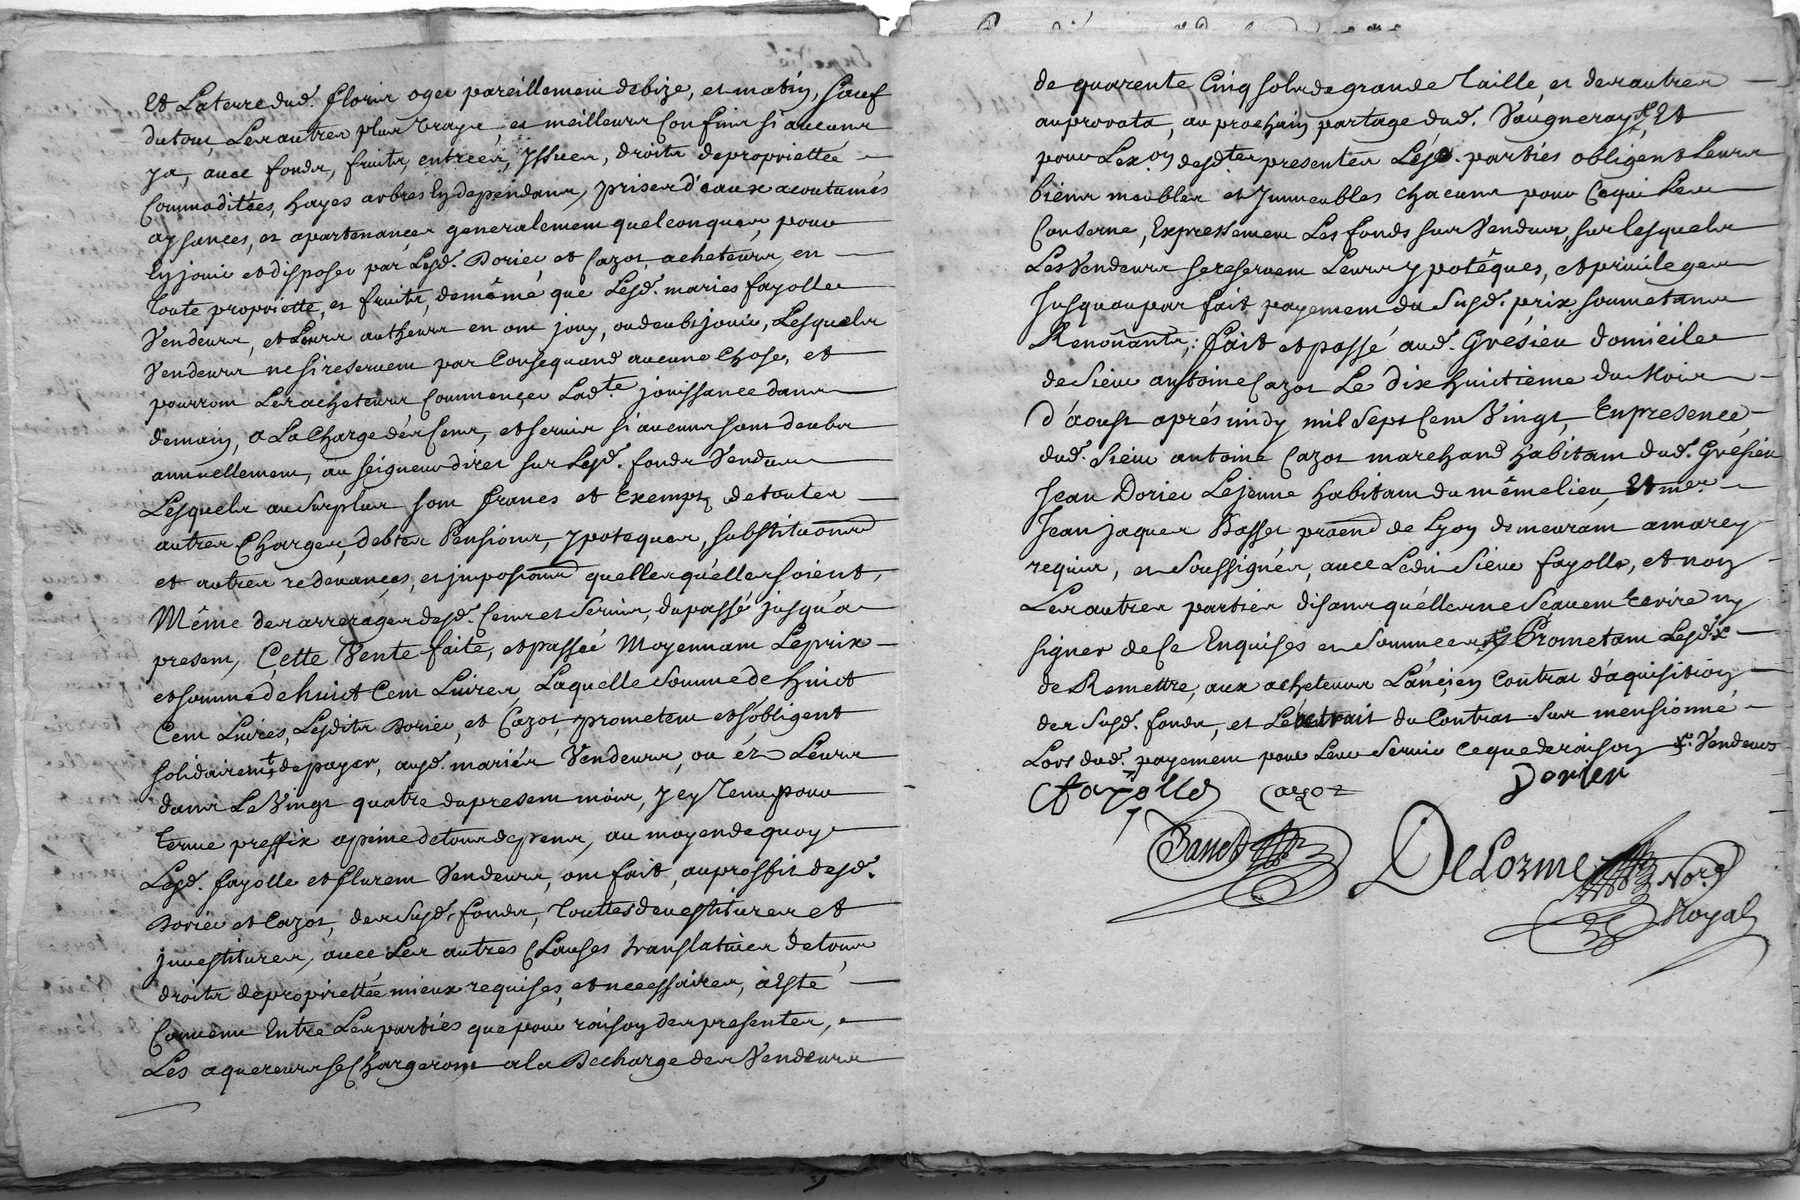 Et La terre dud. florin oger pareillement de bize, et matin, sauf
du tout Les autres plus vrays et meilleurs Confins si aucuns
y a, avec fonds, fruits, entrées, yssues, droits de propriettée
Commoditées, hayes arbres En dependans, prises d'eaux acoutumés
aysances, et apartenançes generalement quelconques, pour
En jouir et disposer par Lesd. Dorier et Cazot acheteurs, en
toute propriette, et fruits, de même que Lesd. mariés fayolle
Vendeurs, et Leurs autheurs en ont jouy, ou deub jouir, Lesquels
Vendeurs ne si reservent par Consequand aucune Chose, et
pourront Les acheteurs Commençer Lad.te jouissance dans
demain, a La Charge des Cens, et servis si aucuns sont deubs
annuellement, au seigneur direct sur Lesd. fonds Vendus
Lesquels au surplus sont francs et Exempts de toutes
autres Charges, debtes Pensions, ypoteques, substitutions
et autres redevançes, et impositions quelles qu'elles soient,
Même des arrerages desd. Cens et Servis, du passé jusqu'a
present, Cette Vente faite, et passée Moyennant Le prix
et somme de huict Cent Livres Laquelle Somme de huict
Cent Livres, Lesdits Dorier, et Cazot, prometent et s'obligent
solidairem.t de payer, aud. mariés Vendeurs, ou és Leurs
dans Le Vingt quatre du present mois, yey tenu pour
terme preffix a peine de tous depens, au moyen de quoy
Lesd. fayolle et flurent Vendeurs, ont fait, au proffit desd.
Dorier et Cazot, des Susd. fonds, touttes devestitures et
jnvestitures, avec Les autres Clauses translatives de tous
droits de propriettée mieux requises, et necessaires, à Esté
Convenu Entre Les parties que pour raison des presentes,
Les aquereurs se Chargeront a la Decharge des Vendeurs
de quarente Cinq sols de grande taille, et des autres
au prorata, au prochain partage dud. Vaugneray, Et
pour L'ex.on desd.tes presentes Lesd. parties obligent Leurs
biens meubles et Jmmeubles chacuns pour Ce qui Leur
Conserne, Expressement Les fonds sus Vendus, sur lesquels
Les Vendeurs se reservent Leurs ypotêques, et privileges
Jusqu'au parfait payement du Susd. prix, soumetans
Renonçants, Fait et passé aud. Grésieu domicile
de Sieur antoine Cazot Le dix huitième du Mois
d'aoust aprés midy mil Sept Cent Vingt, En presence,
dud. Sieur antoine Cazot marchand habitant dud. Grésieu
Jean Dorier Le jeune habitant du même lieu, Et me.
Jean Jaques Basset de Lyon demeurant a marcy
requis, et Soussignés, avec Ledit Sieur fayolle, et non
Les autres parties disans qu'elles ne Scavent Ecrire ny
signer de Ce Enquises et Sommées Prometant Lesd.
de Remettre, aux acheteurs L'ancien Contrat d'aquisition
des Susd. fonds, et L'extrait du Contrat Sus mensionné
Lors dud. payement pour Leur Servir Ce que de raison Vendeurs
Fayolle Cazot Dorier
Basset
DeLorme Nore
Royal